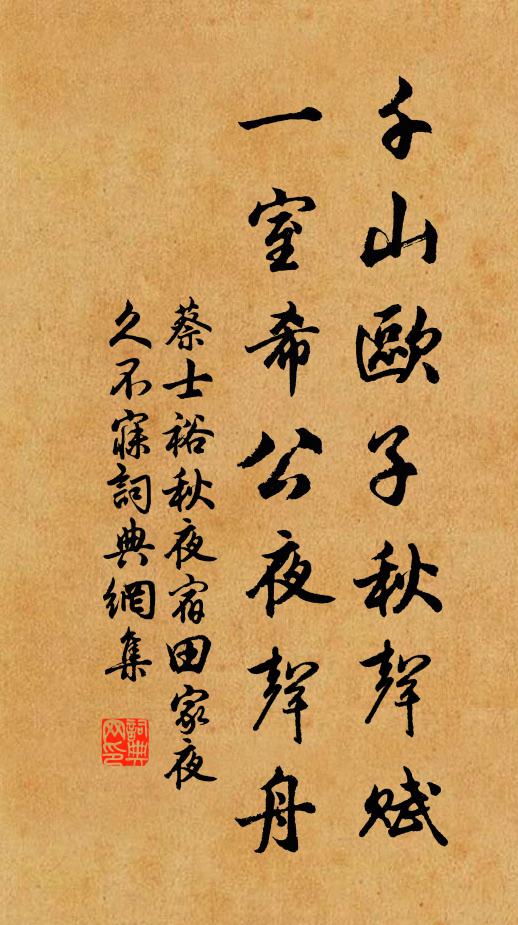 千山歐子秋聲賦
一室希公夜聲舟
蔡士裕秋夜宿田家夜
久不寐詞典網集
詞典
网印